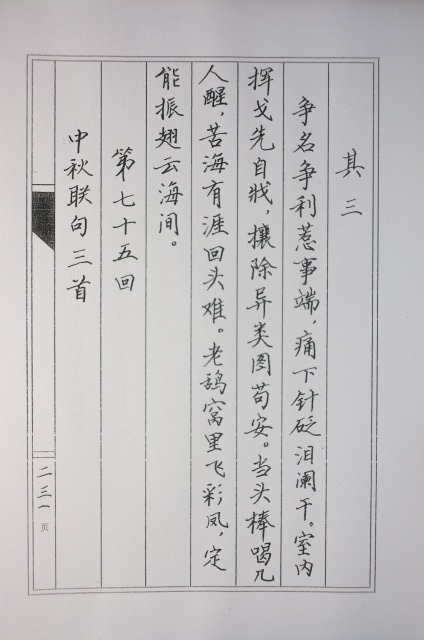 其三
争名争利惹事端，痛下针砭泪阑干。室内
挥戈先自戕，攘除异类图苟安。当头棒喝几
人醒，苦海有涯回头难。老鸹窝里飞彩凤，定
能振翅云海间。
第七十五回
中秋联句三首
二三一页